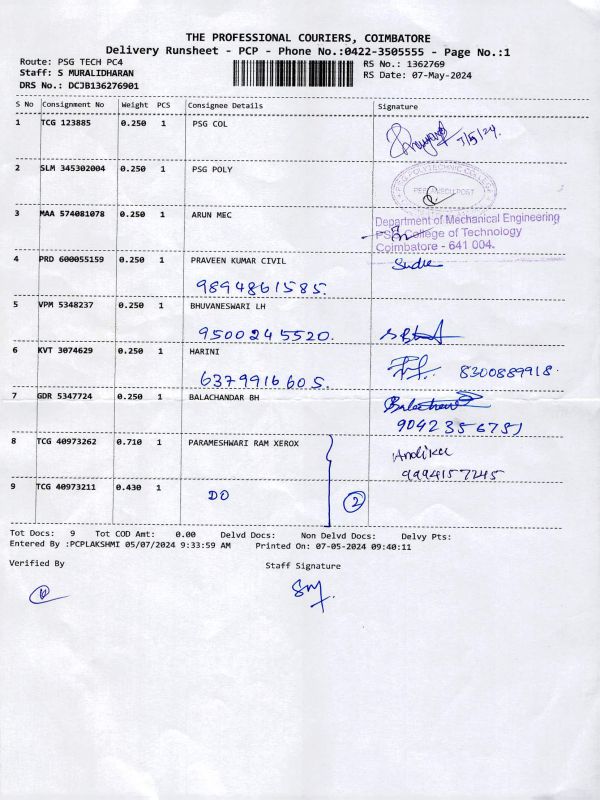 THE PROFESSIONAL COURIERS, COIMBATORE
Delivery Runsheet - PCP - Phone No.:0422-3505555 - Page No.:1
Route: PSG TECH PC4
RS No.: 1362769
Staff: S MURALIDHARAN
RS Date: 07-May-2024
DRS No.: DCJB136276901
S No Consignment No Weight PCS Consignee Details Signature
1 TCG 123885 0.250 1 PSG COL
7/5/24.
2 SLM 345302004 0.250 1 PSG POLY
PSG POLYTECHNIC COLLEGE
3 MAA 574081078 0.250 1 ARUN MEC
Department of Mechanical Engineering
PSG College of Technology
Coimbatore - 641 004.
4 PRD 600055159 0.250 1 PRAVEEN KUMAR CIVIL
9894861585.
5 VPM 5348237 0.250 1 BHUVANESWARI LH
9500245520.
6 KVT 3074629 0.250 1 HARINI
8300889918.
6379916605.
7 GDR 5347724 0.250 1 BALACHANDAR BH
9042356751
8 TCG 40973262 0.710 1 PARAMESHWARI RAM XEROX
9994157245
9 TCG 40973211 0.430 1 DO
2
Tot Docs: 9 Tot COD Amt: 0.00 Delvd Docs: Non Delvd Docs: Delvy Pts:
Entered By :PCPLAKSHMI 05/07/2024 9:33:59 AM Printed On: 07-05-2024 09:40:11
Verified By
Staff Signature